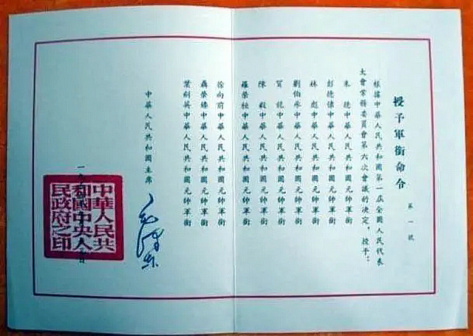 授予軍銜命令
第一號
根據中華人民共和國第一屆全國人民代表
大會常務委員會第六次會議的決定，授予：
朱 德中華人民共和國元帥軍銜
彭德懷中華人民共和國元帥軍銜
林 彪中華人民共和國元帥軍銜
劉伯承中華人民共和國元帥軍銜
賀 龍中華人民共和國元帥軍銜
陳 毅中華人民共和國元帥軍銜
羅榮桓中華人民共和國元帥軍銜
徐向前中華人民共和國元帥軍銜
聶榮臻中華人民共和國元帥軍銜
葉劍英中華人民共和國元帥軍銜
中華人民共和國主席
毛澤東
一九 日
中華人民共
和國中央人
民政府之印